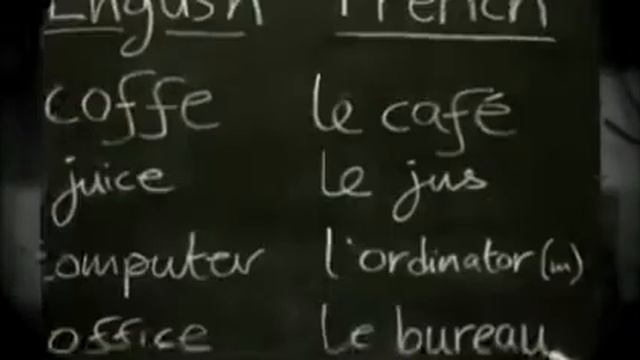 English French
coffe le café
juice le jus
computer l'ordinator (m)
office le bureau